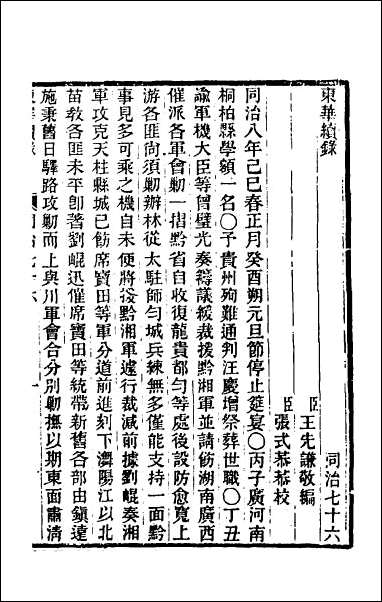 東華續錄
同治七十六
臣王先謙敬編
臣張式恭恭校
同治八年己巳春正月癸酉朔元旦節停止筵宴○丙子廣河南
桐柏縣學額一名○予貴州殉難通判汪慶增祭葬世職○丁丑
諭軍機大臣等曾璧光奏籌議緩裁援黔湘軍並請飭湖南廣西
催派各軍會勦一摺黔省自收復龍貴都勻等處後設防愈寬上
游各匪尚須勦辦林從太駐師勻城兵練無多僅能支持一面黔
事見多可乘之機自未便將援黔湘軍遽行裁減前據劉崐奏湘
軍攻克天柱縣城已飭席寶田等軍分道前進刻下㵲陽江以北
苗敎各匪未平卽著劉崐迅催席寶田等統帶新舊各部由鎭遠
施秉舊日驛路攻勦而上與川軍會合分別勦撫以期東面肅淸